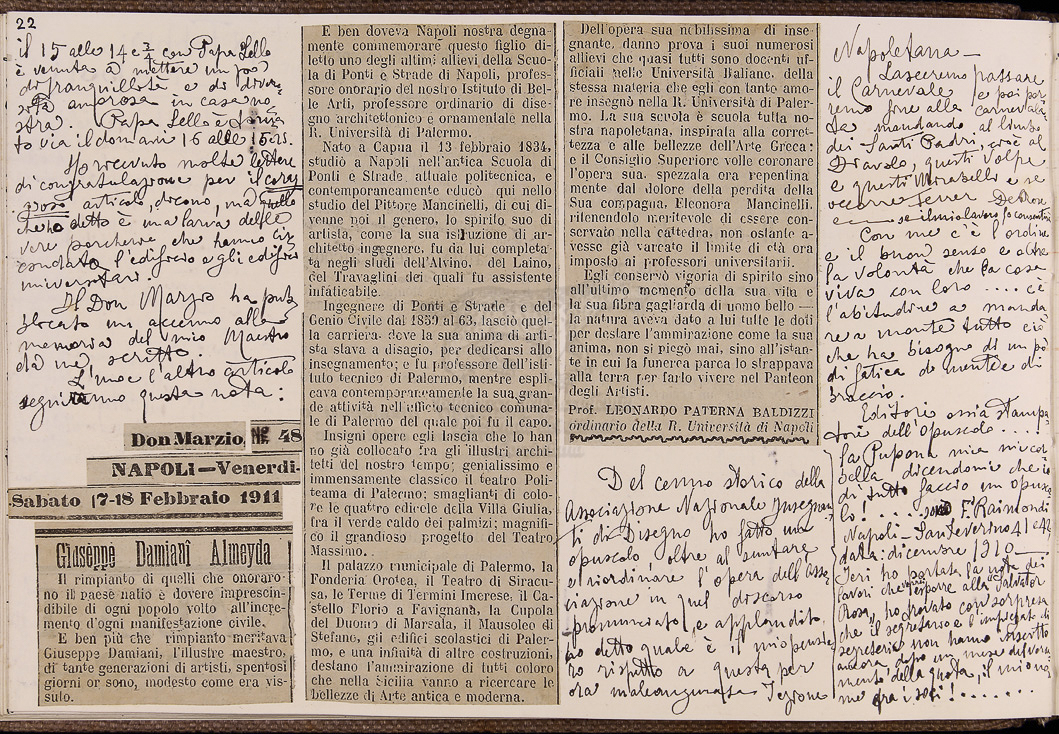 22
il 15 alle 14 e 3/4 con Papà Lello
è venuta a mettere un poo
di tranquillità e di
amorosa in casa no
stra. Papà Lello è
to via il domani 16 alle 15
Ho ricevuto molte lettere
di congratulazione per il corag
gioso articolo, dicono, ma quello
che ho detto è una larva delle
vere porcherie che hanno cir
condato l'edificio e gli edifici
universitari.
Il Don Marzio ha pub
blicato un accenno alla
memoria del mio Maestro
da me scritto.
L'uno e l'altro articolo
seguiranno questa nota:
Don Marzio, Nº 48
NAPOLI—Venerdì-
Sabato 17-18 Febbraio 1911
Giuseppe Damiani Almeyda
Il rimpianto di quelli che onoraro-
no il paese natio è dovere imprescin-
dibile di ogni popolo volto all'incre-
mento d'ogni manifestazione civile.
E ben più che rimpianto meritava
Giuseppe Damiani, l'illustre maestro,
di tante generazioni di artisti, spentosi
giorni or sono, modesto come era vis-
suto.
E ben doveva Napoli nostra degna-
mente commemorare questo figlio di-
letto uno degli ultimi allievi della Scuo-
la di Ponti e Strade di Napoli, profes-
sore onorario del nostro Istituto di Bel-
le Arti, professore ordinario di dise-
gno architettonico e ornamentale nella
R. Università di Palermo.
Nato a Capua il 13 febbraio 1834,
studiò a Napoli nell'antica Scuola di
Ponti e Strade attuale politecnica, e
contemporaneamente educò qui nello
studio del Pittore Mancinelli, di cui di-
venne poi il genero, lo spirito suo di
artista, come la sua istruzione di ar-
chitetto ingegnere, fu da lui completa-
ta negli studi dell'Alvino, del Laino,
del Travaglini dei quali fu assistente
infaticabile.
Ingegnere di Ponti e Strade e del
Genio Civile dal 1859 al 63, lasciò quel-
la carriera, dove la sua anima di arti-
sta stava a disagio, per dedicarsi allo
insegnamento; e fu professore dell'isti-
tuto tecnico di Palermo, mentre espli-
cava contemporaneamente la sua gran-
de attività nell'ufficio tecnico comuna-
le di Palermo del quale poi fu il capo.
Insigni opere egli lascia che lo han-
no già collocato fra gli illustri archi-
tetti del nostro tempo; genialissimo e
immensamente classico il teatro Poli-
teama di Palermo; smaglianti di colo-
re le quattro edicole della Villa Giulia,
fra il verde caldo dei palmizi; magnifi-
co il grandioso progetto del Teatro
Massimo.
Il palazzo municipale di Palermo, la
Fonderia Orotea, il Teatro di Siracu-
sa, le Terme di Termini Imerese, il Ca-
stello Florio a Favignana, la Cupola
del Duomo di Marsala, il Mausoleo di
Stefano, gli edifici scolastici di Paler-
mo, e una infinità di altre costruzioni,
destano l'ammirazione di tutti coloro
che nella Sicilia vanno a ricercare le
bellezze di Arte antica e moderna.
Dell'opera sua nobilissima di inse-
gnante, danno prova i suoi numerosi
allievi che quasi tutti sono docenti uf-
ficiali nelle Università Italiane, della
stessa materia che egli con tanto amo-
re insegnò nella R. Università di Paler-
mo. La sua scuola è scuola tutta no-
stra napoletana, inspirata alla corret-
tezza e alle bellezze dell'Arte Greca:
e il Consiglio Superiore volle coronare
l'opera sua, spezzata ora repentina-
mente dal dolore della perdita della
Sua compagna, Eleonora Mancinelli,
ritenendolo meritevole di essere con-
servato nella cattedra, non ostante a-
vesse già varcato il limite di età ora
imposto ai professori universitarii.
Egli conservò vigoria di spirito sino
all'ultimo momento della sua vita e
la sua fibra gagliarda di uomo bello
la natura aveva dato a lui tutte le doti
per destare l'ammirazione come la sua
anima, non si piegò mai, sino all'istan-
te in cui la funerea parca lo strappava
alla terra per farlo vivere nel Panteon
degli Artisti.
Prof. LEONARDO PATERNA BALDIZZI
ordinario della R. Università di Napoli
Del cenno storico della
Associazione Nazionale Insegnan
ti di Disegno ho fatto un
opuscolo oltre al suntare
e riordinare l'opera dell'Asso
ciazione in quel discorso
pronunciato e applaudito,
ho detto quale è il mio pensie
ro rispetto a questa per
ora malaugurata Sezione
Napoletana —
Lasceremo passare
il Carnevale e poi por
remo fine alla carnevala
ta mandando al limbo
dei Santi Padri, cioè al
Diavolo, questi Volpe
e questi Mirabelli e se
occorre Ferrer De Rose
se il mio lavoro lo consentirà
Con me c'è l'ordine
e il buon senso e oltre
la volontà che la cosa
viva con loro .... c'è
l'abitudine a manda
re a monte tutto ciò
che ha bisogno di un po'
di fatica di mente e di
braccio.
Editori ossia stampa
tori dell'opuscolo ....
la Pupona mia micol
bella dicendomi che io
di tutto faccio un opusco
lo! .... F. Raimondi
Napoli — Sanseverino 41 e 42
data: dicembre 1910 —
Ieri ho portata la nota dei
lavori che vorrei esporre alla "Salvator
Rosa", ho provato con sorpresa
che il segretario e l'impiegato di
segreteria non hanno iscritto
ancora, dopo un mese di versa
mento della quota, il mio no
me fra i soci! .......